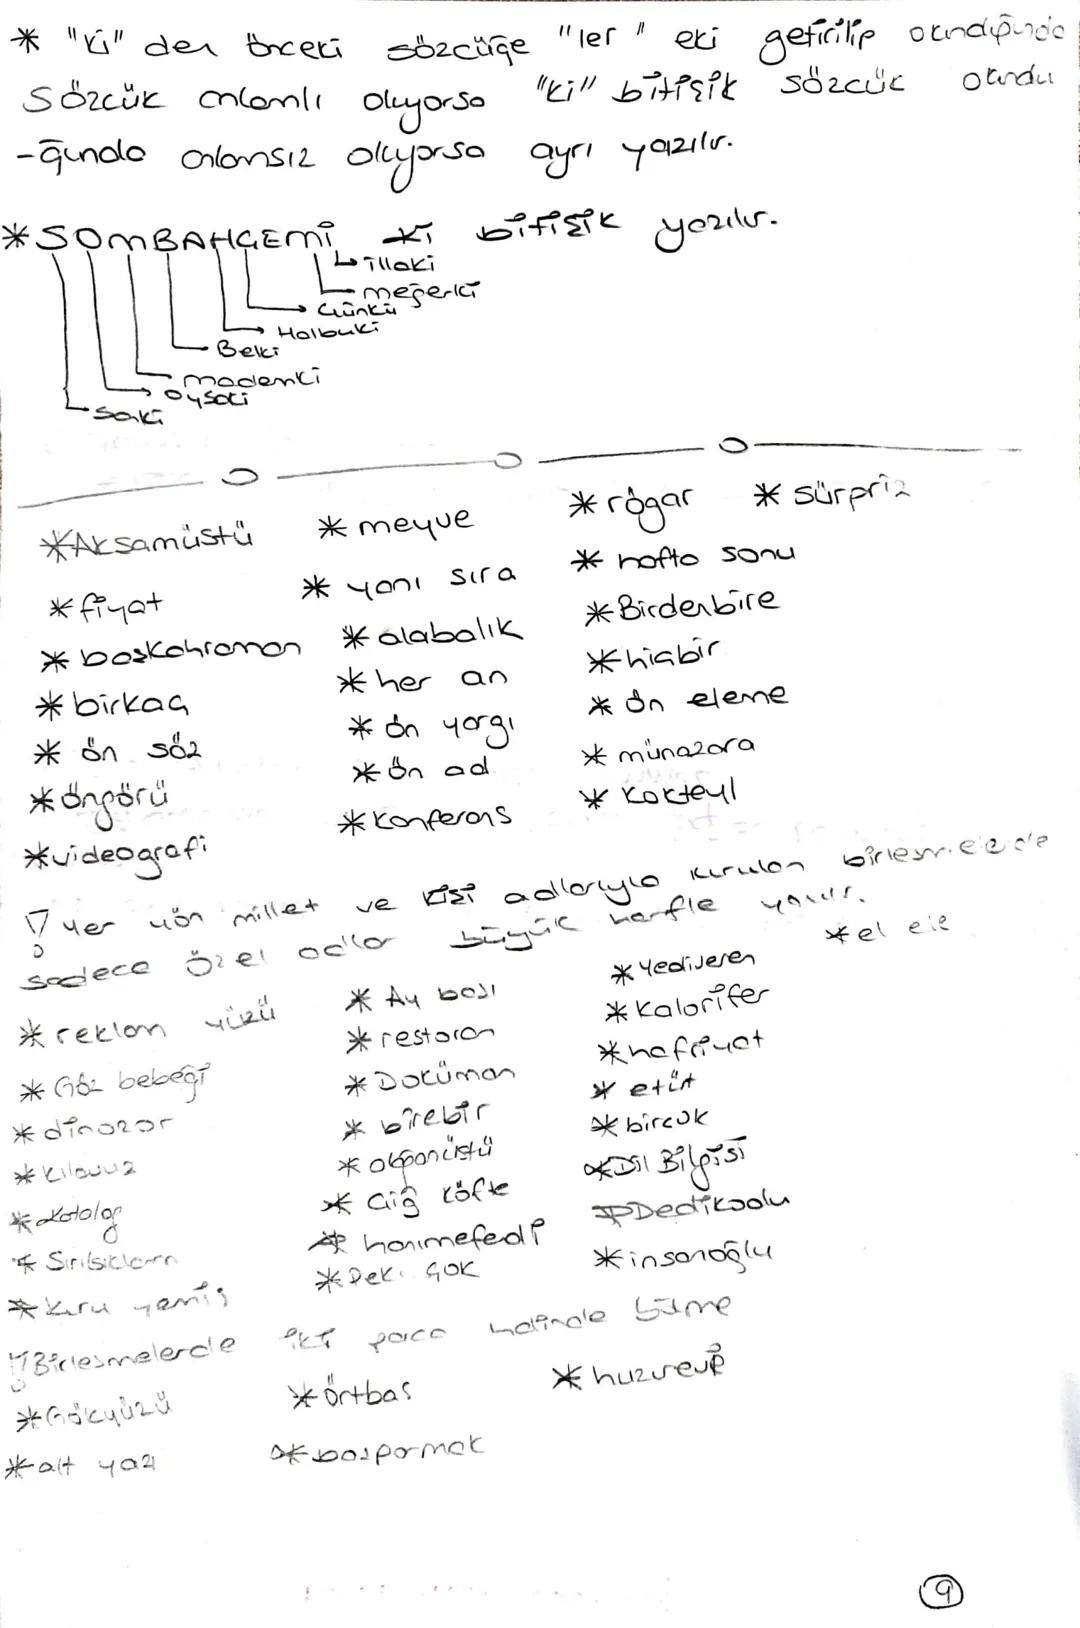 * "ki" den önceki sözcüğe "ler" eki getirilip okunduğunda
Sözcük anlamlı oluyorsa "ki" bitişik sözcük okundu
-ğunda anlamsız oluyorsa ayrı yazılır.
* SOMBAHÇEMİ ki bitişik yazılır.
illaki
meğerki
Çünkü
Halbuki
Belki
mademki
oysaki
Sanki
* Akşamüstü * meyve * rögar * sürpriz
* fiyat * yanı sıra * hafta sonu
* başkahraman * alabalık * Birdenbire
* birkaç * her an * hiçbir
* ön söz * ön yargı * ön eleme
* öngörü * ön ad * münazara
* videografi * Konferans * Kokteyl
! yer yön millet ve kişi adlarıyla kurulan birleşmelerde
sadece özel adlar büyük harfle yazılır.
* reklam yüzü * Ay başı * Yediveren * el ele
* Göz bebeği * restoran * Kalorifer
* dinozor * Doküman * hafriyat
* Kılavuz * birebir * etüt
* Katalog * olağanüstü * birçok
* Sırılsıklam * Çiğ köfte * Dil Bilgisi
* Kuru yemiş * hanımefendi * Dedikodu
* Pek çok * insanoğlu
! Birleşmelerde iki parça halinde bölme
* Gökyüzü * örtbas * huzurevi
* alt yazı * başparmak
9